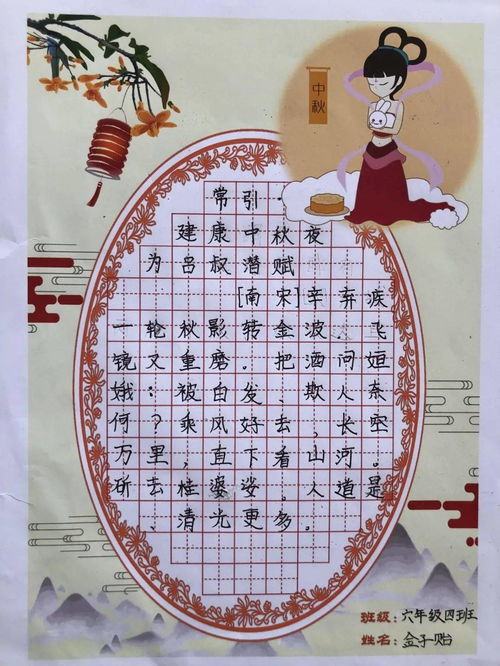 中秋
常引·
建康中秋夜
为吕叔潜赋
[南宋]辛弃疾
一轮秋影转金波，飞
镜又重磨。把酒问姮
娥：被白发、欺人奈
何？乘风好去，长空
万里，直下看山河。
斫去桂婆娑。人道是
、清光更多。
班级：六年级四班
姓名：金子贻